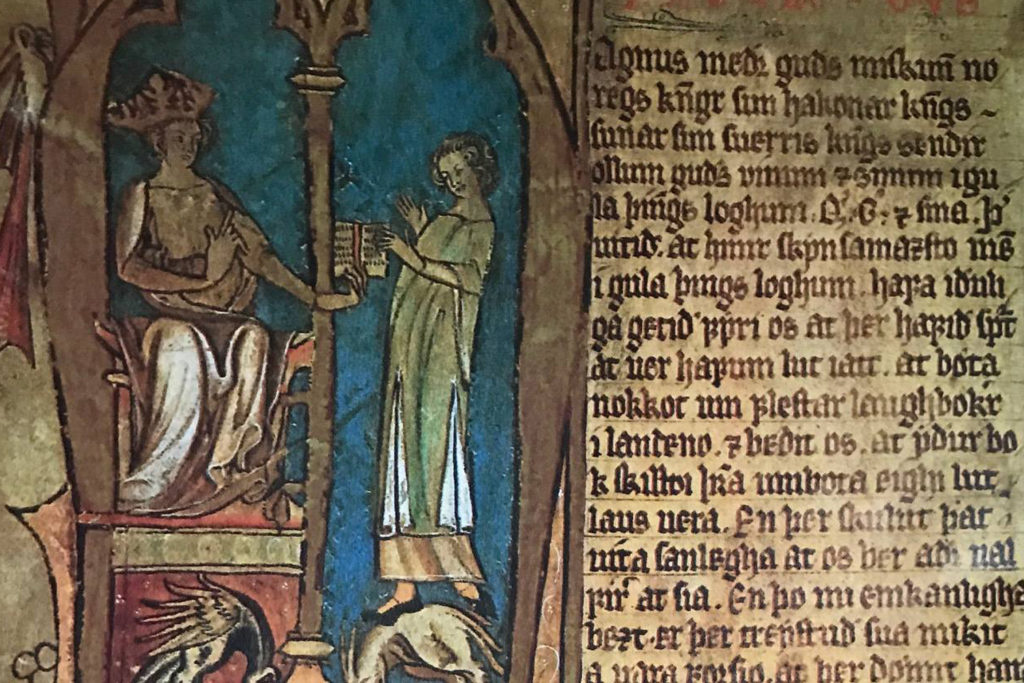 agnus medr guds miskun̅ no
regs kn̅gr sun hakonar kn̅gs
sunar sun suerris kn̅gs sendir
ollum guds uinum ⁊ synum i gu
la þin̅gs loghum. Q. G. ⁊ sina. Þ̓
uitid. at hinir skynsamazsto me̅
i gula þings loghum. hafa iduli
ga getid fyri os at þer hafid spt̅
at uer hafum lut iatt. at bota
nokkot um flestar laughbokr
i landeno. ⁊ bedit os. at ydur bo
k skilldi umbota eighi lut
laus uera. En þer skulut þat
uita sanlegha at os ber
at sia. En þo nu einkanlighe
bezt. er þer treystud sua mikit
a uara forsio. at þer